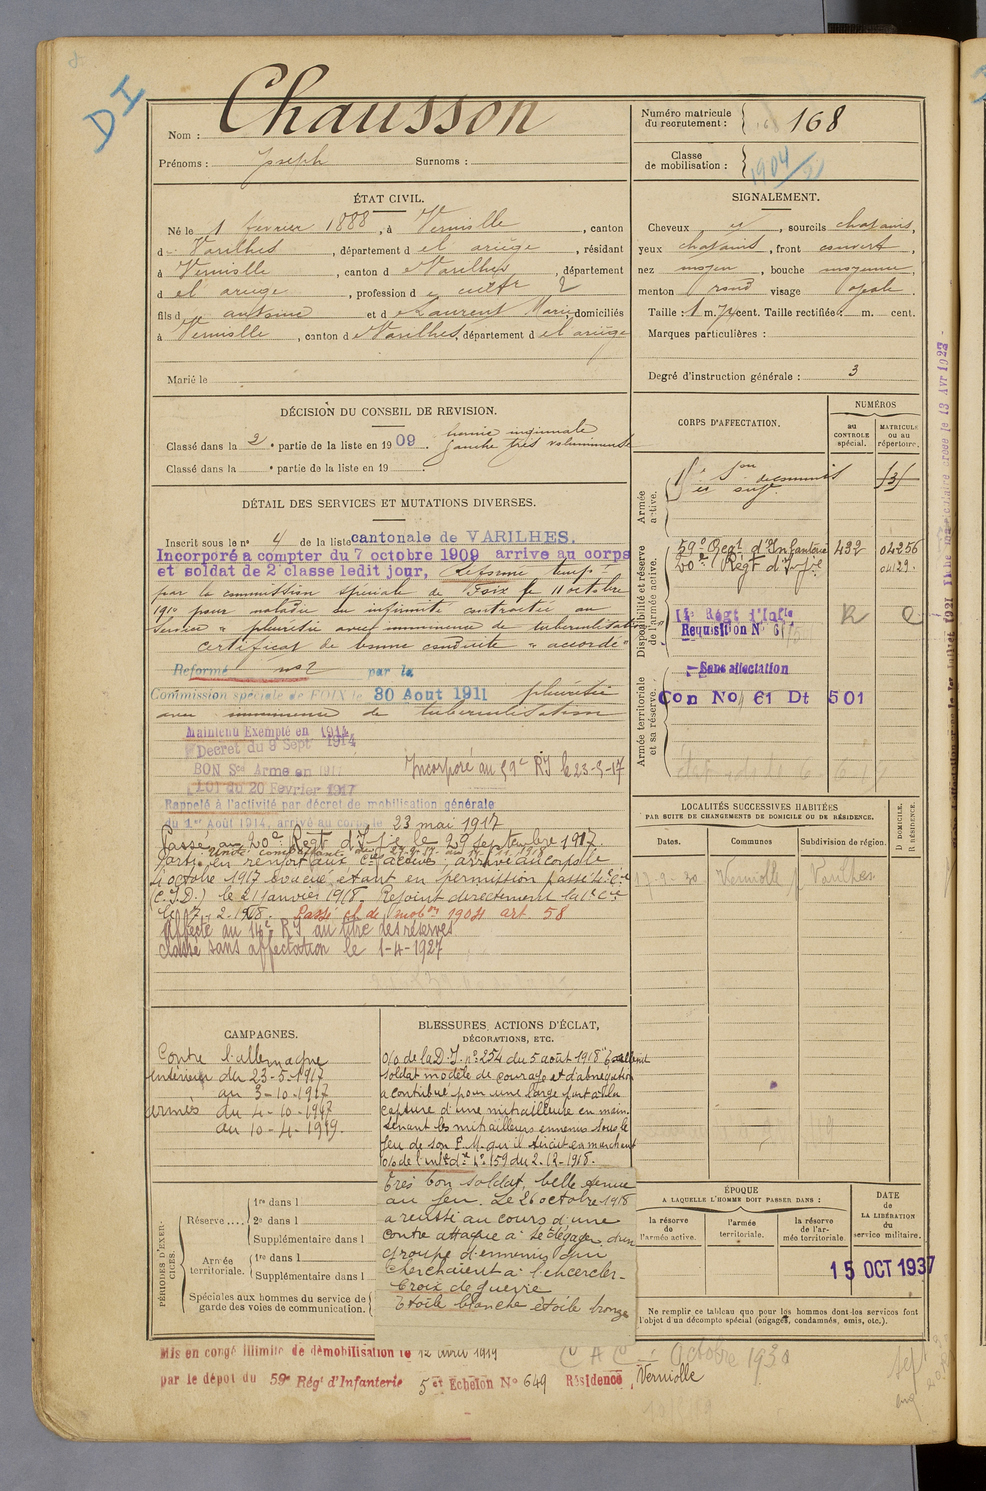 DI
Nom : Chausson
Prénoms : Joseph Surnoms :
Numéro matricule du recrutement : 168
Classe de mobilisation : 1904/21
ÉTAT CIVIL.
Né le 1 février 1888, à Verniolle, canton
d Varilhes, département d el ariège, résidant
à Verniolle, canton d Varilhes, département
d el ariege, profession d cultr 2
fils d antoine et d Laurent Marie, domiciliés
à Verniolle, canton d Varilhes, département d el ariège
Marié le
SIGNALEMENT.
Cheveux et, sourcils chatains,
yeux chatains, front couvert,
nez moyen, bouche moyenne,
menton rond visage ovale.
Taille : 1 m. 72 cent. Taille rectifiée : m. cent.
Marques particulières :
Degré d'instruction générale : 3
DÉCISION DU CONSEIL DE REVISION.
Classé dans la 2e partie de la liste en 1909. hernie inguinale
gauche très volumineuse
Classé dans la e partie de la liste en 19 .
DÉTAIL DES SERVICES ET MUTATIONS DIVERSES.
Inscrit sous le no 4 de la liste cantonale de VARILHES.
Incorporé a compter du 7 octobre 1909 arrive au corps
et soldat de 2e classe ledit jour, Réformé tempre
par la commission spéciale de Foix le 11 octobre
1910 pour maladie ou infirmité contractée au
service "pleurésie avec imminence de tuberculisation"
certificat de bonne conduite "accordé"
Réformé no 2 par la
Commission spéciale de FOIX le 30 Aout 1911 pleurésie
avec imminence de tuberculisation
Maintenu Exempté en 1914
Decret du 9 Sept 1914
BON Sce Armé en 1917
LOI du 20 Fevrier 1917
Incorporé au 59e RI le 23-5-17
Rappelé à l'activité par décret de mobilisation générale
du 1er Août 1914, arrivé au corps le 23 mai 1917
Passé au 20e Régt d'Ie le 29 septembre 1917.
Parti en renfort aux armées : arrivé au corps le
4 octobre 1917 évacué étant en permission passé
(C.I.D.) le 21 janvier 1918. Rejoint directement la 1e Cie
le 7-2-1918. Passé cl de mobon 1904 art. 58
Affecté au 14e RI au titre des réserves
classé sans affectation le 1-4-1927
CORPS D'AFFECTATION.
NUMÉROS
au CONTROLE spécial.
MATRICULE ou au répertoire.
Armée active.
131
Disponibilité et réserve de l'armée active.
59e Regt d'Infanterie 492 04256
20e Régt d'Ie 04129.
14e Régt d'Infie
Requisition No 61
Sans affectation
Armée territoriale et sa réserve.
Con No 61 Dt 501
LOCALITÉS SUCCESSIVES HABITÉES
PAR SUITE DE CHANGEMENTS DE DOMICILE OU DE RÉSIDENCE.
Dates. Communes Subdivision de région. D DOMICILE. R RÉSIDENCE.
17-9-30 Verniolle Varilhes
CAMPAGNES.
Contre l'allemagne
intérieur du 23-5-1917
au 3-10-1917
armées du 4-10-1917
au 10-4-1919.
BLESSURES, ACTIONS D'ÉCLAT,
DÉCORATIONS, ETC.
o/o de la D.I. no 254 du 5 août 1918 "Excellent
soldat modèle de courage et d'abnégation
a contribué pour une large part à la
capture d'une mitrailleuse en main.
tenant les mitrailleurs ennemis sous le
feu de son F.M. qu'il tirait en marchant
o/o de l'infe de No 159 du 2-12-1918.
très bon soldat, belle tenue
au feu. Le 26 octobre 1918
a réussi au cours d'une
contre attaque à se dégager d'un
groupe d'ennemis qui
cherchaient à l'encercler-
Croix de guerre
Etoile blanche étoile bronze
PÉRIODES D'EXERCICES.
Réserve....
1re dans l
2e dans l
Supplémentaire dans l
Armée territoriale.
1re dans l
Supplémentaire dans l
Spéciales aux hommes du service de garde des voies de communication.
ÉPOQUE
A LAQUELLE L'HOMME DOIT PASSER DANS :
la réserve de l'armée active.
l'armée territoriale.
la réserve de l'armée territoriale.
DATE de LA LIBÉRATION du service militaire.
15 OCT 1937
Ne remplir ce tableau que pour les hommes dont les services font
l'objet d'un décompte spécial (engagés, condamnés, omis, etc.).
Mis en congé illimité de démobilisation le 12 avril 1919
par le dépôt du 59e Régt d'Infanterie 5e Echelon No 649 Résidence Verniolle
Octobre 1930